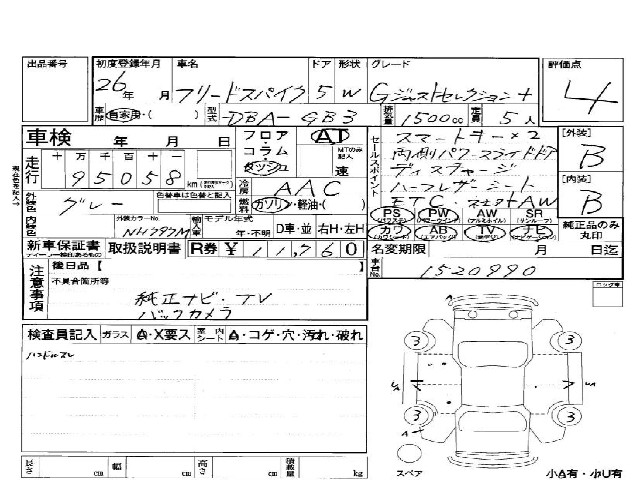 出品番号 初度登録年月 車名 ドア 形状 グレード 評価点
26年 月 フリードスパイク 5 W Gジャストセレクション+ 4
車歴 自家用・( ) 型式 DBA-GB3 排気量 1500cc 定員 5人
車検 年 月 日 フロア AT スマートキー×2 [外装]
コラム MTのみ記入 両側パワースライドドア B
走行 十 万 千 百 十 一 ダッシュ 速 セールスポイント ディスチャージ
95058 km 冷房 AAC ハーフレザーシート [内装]
外装色 グレー 色替車は色替と記入 燃料 ガソリン・軽油・( ) ETC・社外AW B
PS PW AW SR
内装色 外装カラーNo. NH797M 輸入車 モデル年式 年・不明 D車・並 右H・左H カワ AB TV ナビ 純正品のみ丸印
新車保証書 取扱説明書 R券 ¥ 11,760 名変期限 月 日迄
注意事項 後日品【 】 車台No. 1520990
不具合箇所等
純正ナビ・TV
バックカメラ
検査員記入 ガラス A・X要ス 室内シート A・コゲ・穴・汚れ・破れ
ハンドルスレ
3 3
3 3
A
スペア
小A有・小U有
長さ cm 幅 cm 高さ cm 積載量 kg